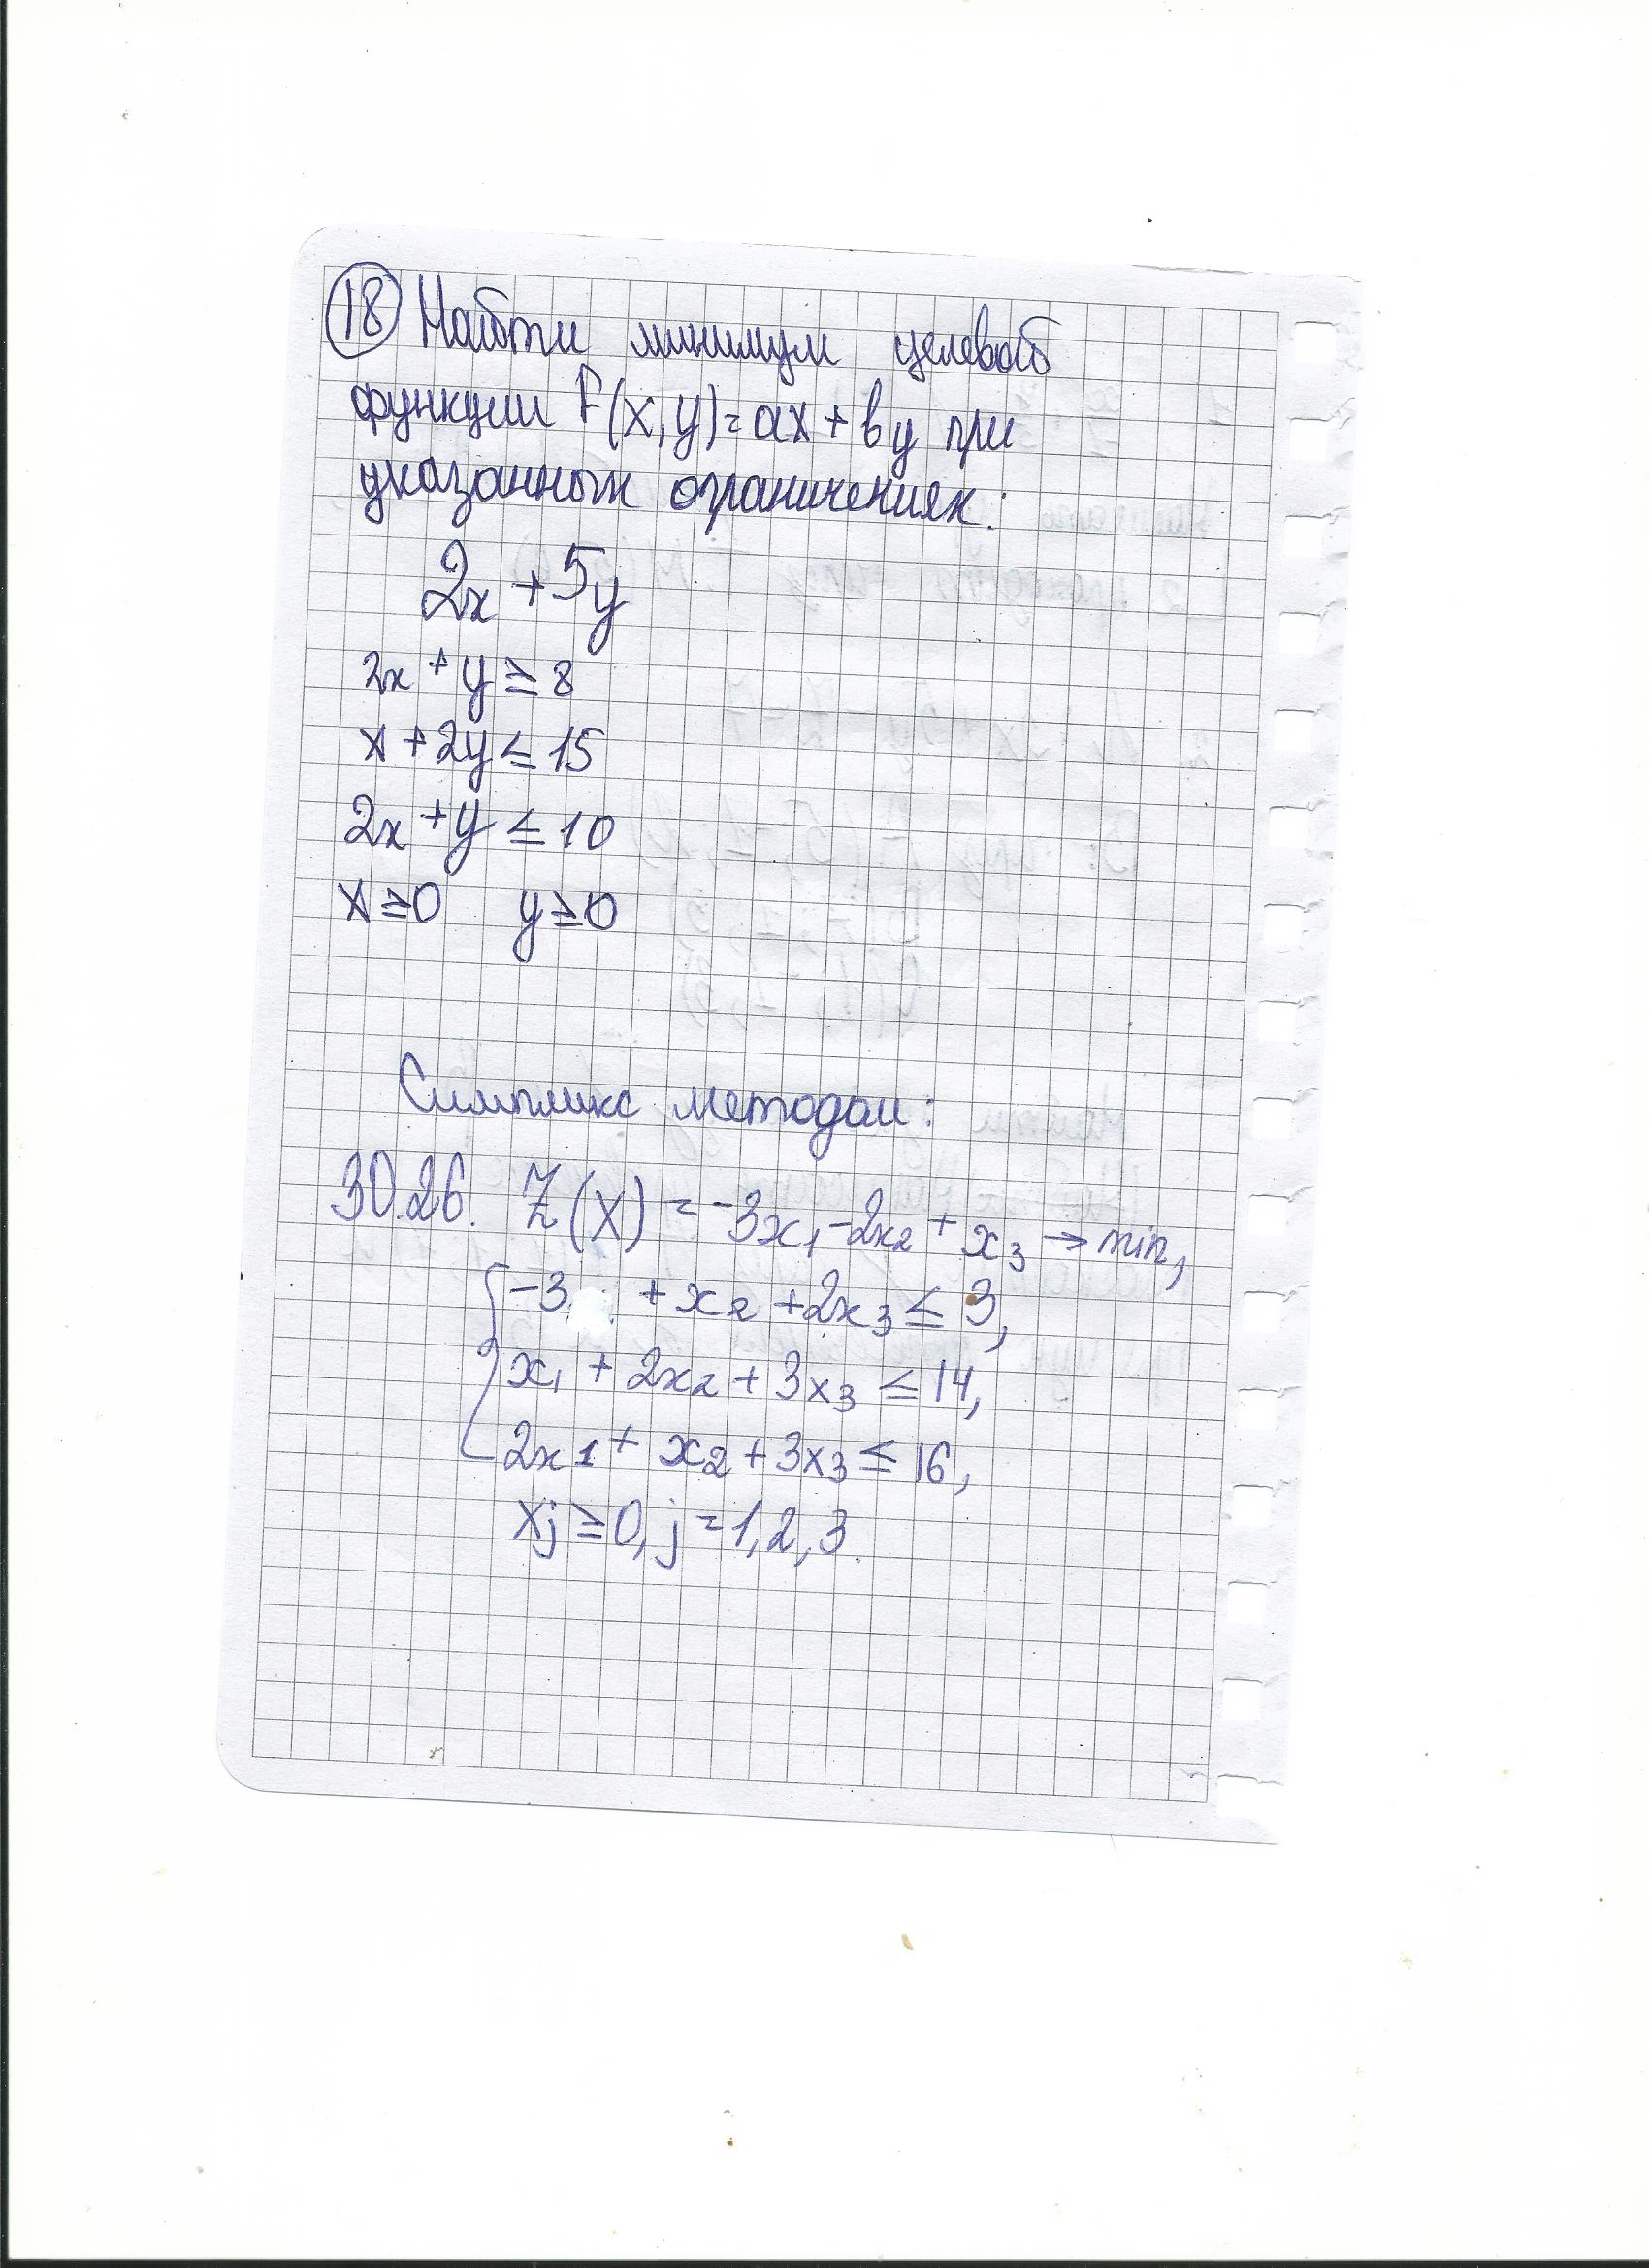 18 Найти минимум целевой
функции F(x,y)=ax+by при
указанных ограничениях:
2x+5y
2x+y≥8
x+2y≤15
2x+y≤10
x≥0 y≥0
Симпликс методом:
30.26. Z(X)=-3x₁-2x₂+x₃→min,
-3 +x₂+2x₃≤3,
x₁+2x₂+3x₃≤14,
2x1+x₂+3x₃≤16,
xj≥0, j=1,2,3.